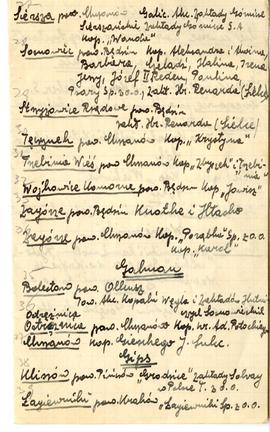 Siersza pow. Chrzanów Galic. Akc. Zakłady Górnicze
Sierszańskie Zakłady Górnicze S.A
Kop. "Wanda"
Sosnowiec pow. Będzin Kop. Aleksander i Mwina
Barbara, Czeladź, Halina, Irena
Jerzy, Józef II Reden, Paulina,
Piasry Sp. z o.o, Zakł. Hr. Renarda (Sielce)
Strzyżowice Rządowe pow. Będzin
Zakł. Hr. Renarda (Sielce)
Tęczynek pow. Chrzanów Kop. "Krystyna"
Trzebinia Wieś pow Chrzanów Kop. "Zbyszek" i "Trzebinia"
Wojkowice Komorne pow. Będzin Kop. "Jowisz"
Zagórze pow. Będzin Knothe i Stacho
Zagórze pow. Chrzanów Kop. Sp. z o.o
Kop. "Karol"
Galman
Bolesław pow. Olkusz
Tow. Akc. Kopalń Węgla i Zakładów Hutn.
Sosnowieckich
Ostrężnica pow. Chrzanów Kop. wł. Ad. Potockiego
Chrzanów Kop. J. Sulc.
Gips
Klissów pow. Pińczów "Grodziec" Zakłady Solvay
w Polsce T. z o.o.
Łagiewniki pow. Kraków "Łagiewniki" Sp. z o.o.